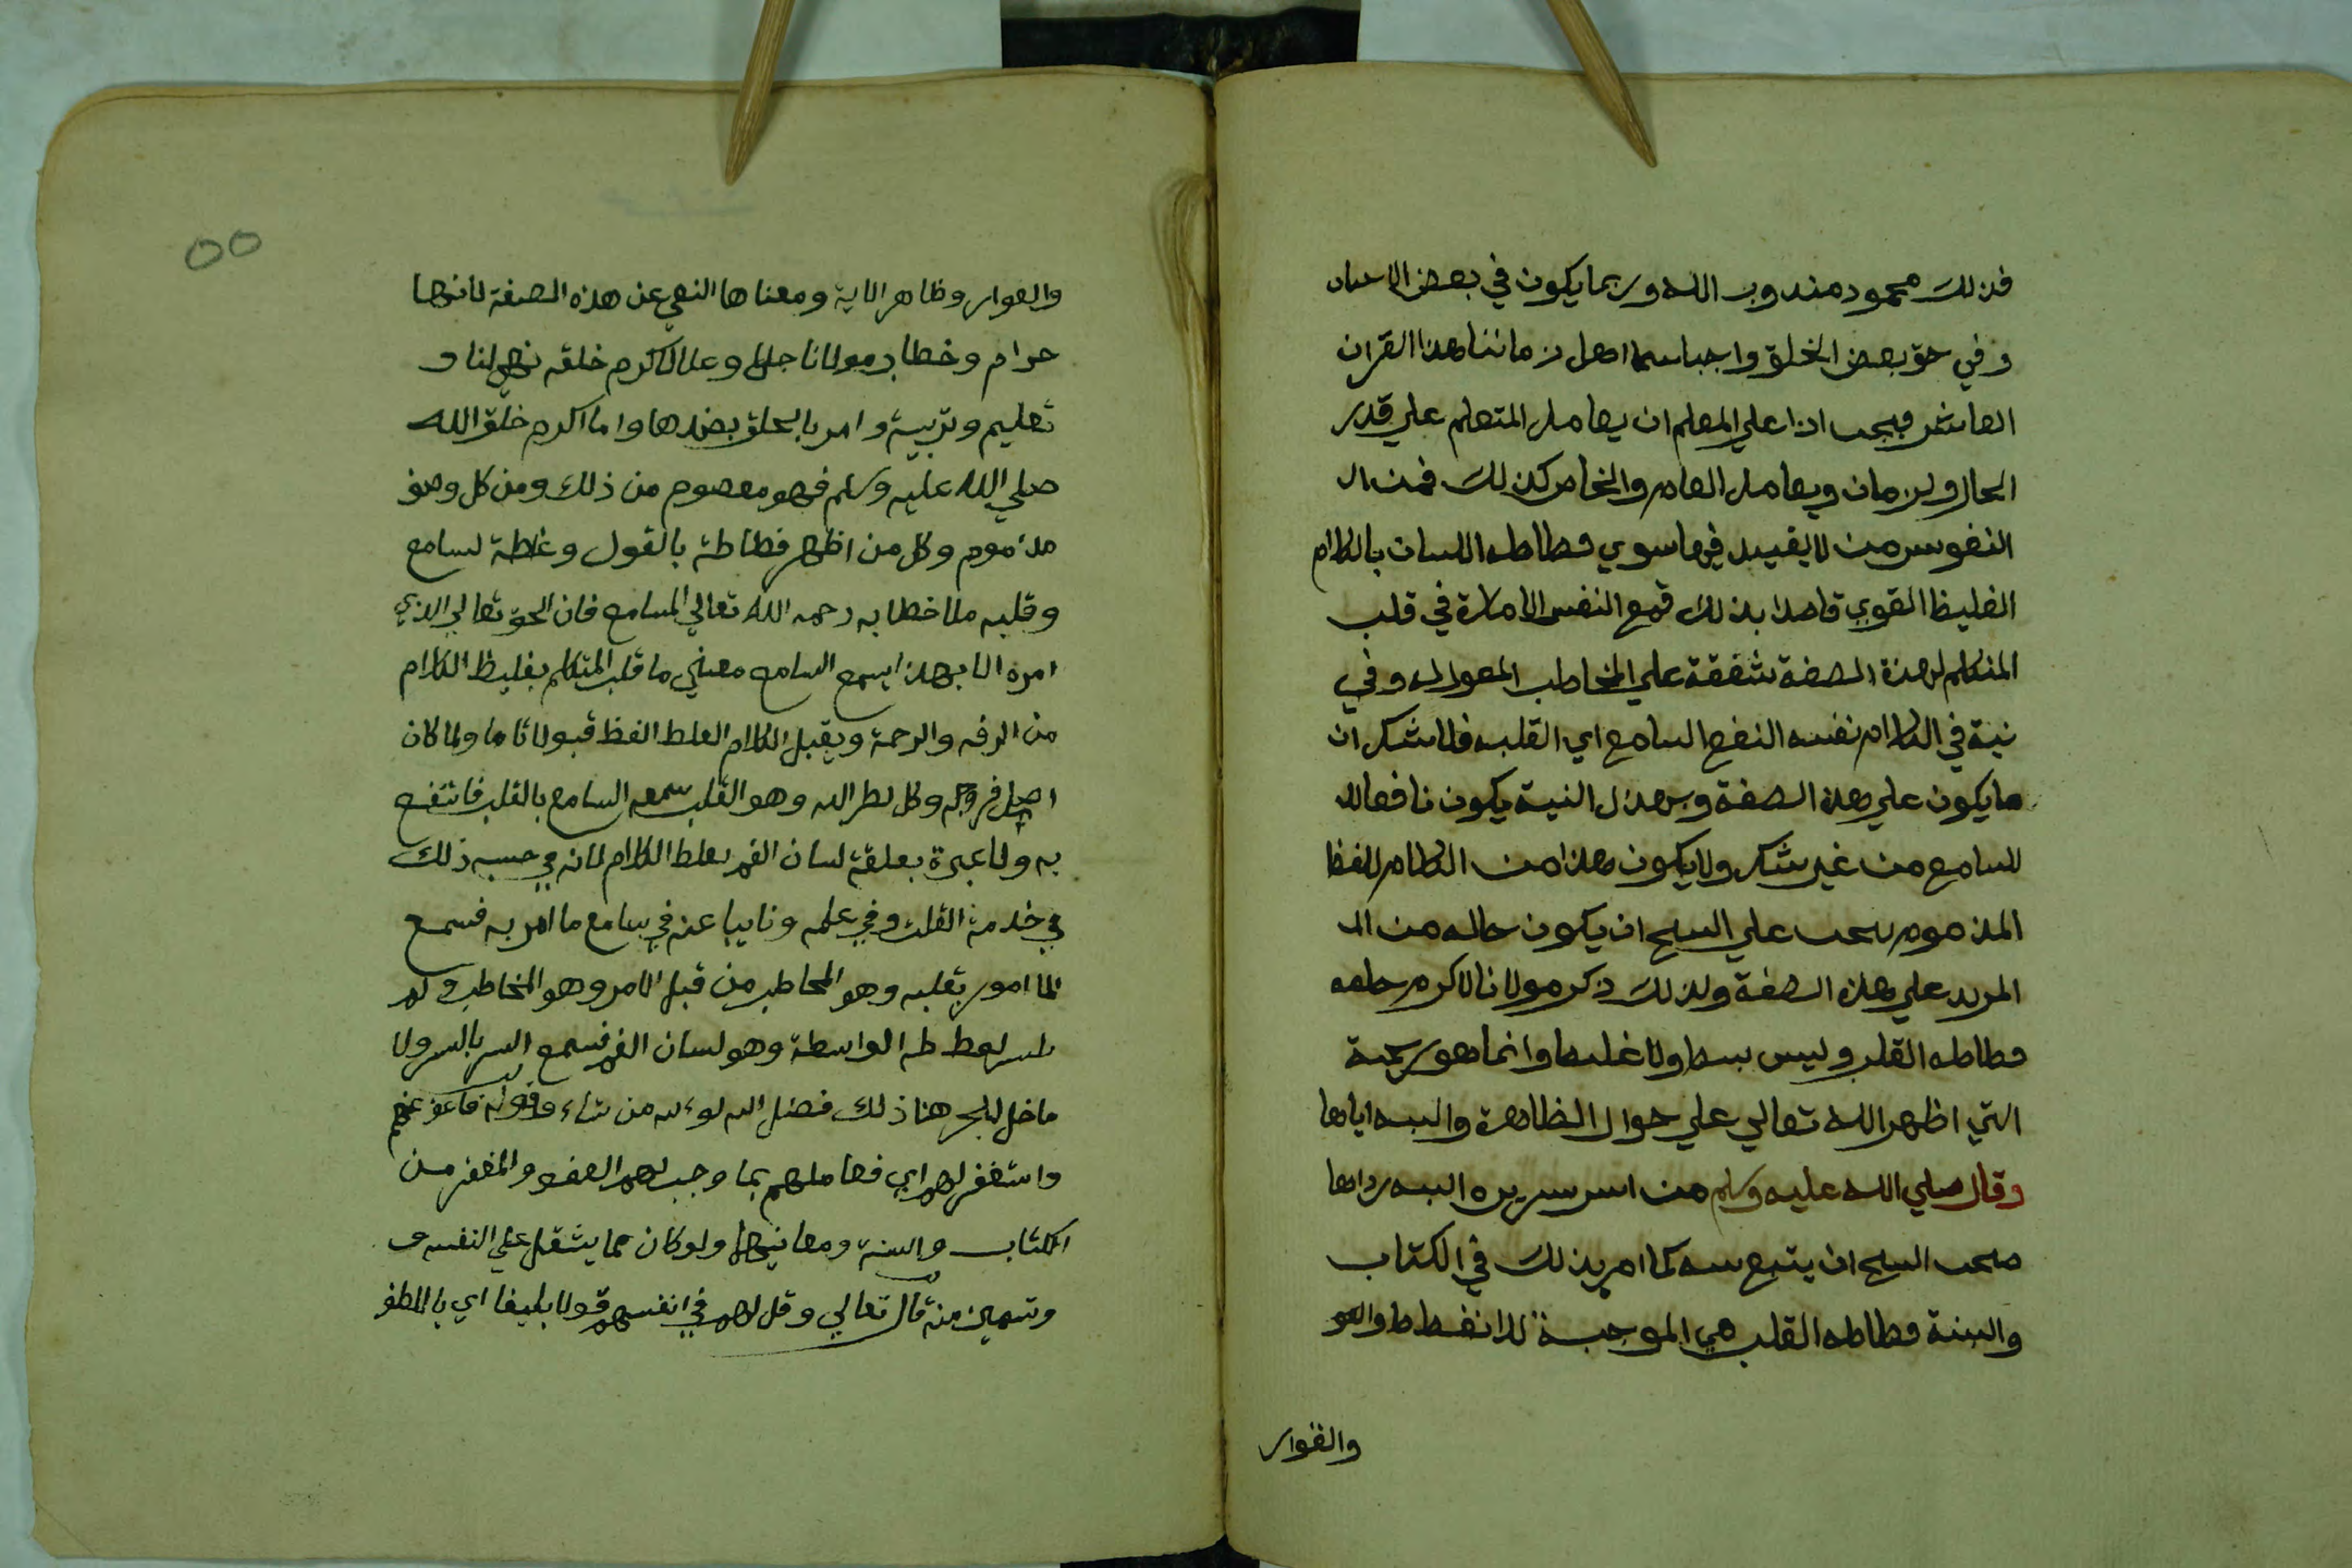 فذلك محمود مندوب الله وربما يكون في بعض الاحيان
وفي حق بعض الخلق واجبا سيما اهل زماننا هذا القرن
العاشر فيجب اذا على المعلم ان يعامل المتعلم علي قدر
الحال والزمان ويعامل العام والخاص كذلك فمن ال
النفوس من لا يفيد فيها سوي فظاظه اللسان بالكلام
الغليظ القوي قاصدا بذلك قمع النفس الامارة في قلب
المتكلم لهذة الصفة شفقة علي المخاطب وفي
نية في الكلام نفسه النفع السامع اي القلب فلا شك ان
ما يكون علي هذه الصفة وبهذه النية يكون نافعا لله
للسامع من غير شك ولا يكون هذا من الكلام للفظ
المذموم يجب علي الشيخ ان يكون حاله من ال
المريد علي هذه الصفة ولذلك ذكر مولانا لاكرم خلقه
فظاظه القلب وليس بفظ ولا غليظ وانما هو
التي اظهر الله تعالي علي حوال الظاهرة والبسه اياها
وقال صلي الله عليه وسلم من اسر سريره البسه رداها
الشيخ ان يتبع كما امر بذلك في الكتاب
والسنة فظاظه القلب هي الموجبة للانفظاظ
والفوار
٥٥
والفوار وظاهر الاية ومعناها النهي عن هذه الصفة لانها
حرام وخطاب مولانا جل وعلا لاكرم خلقه نهي لنا و
تعليم وتربية وامر بالتخلق بضدها واما اكرم خلق الله
صلي الله عليه وسلم فهو معصوم من ذلك ومن كل وصف
مذموم وكل من اظهر فظاظة بالقول وغلظة لسامع
وقلبه رحمه الله تعالي السامع فان الحق تعالي الذي
امره الا بهذا يسمع السامع معني ما قلب المتكلم بغليظ الكلام
من الرفه والرحمة ويقبل الكلام الغلط الفظ قبولا تاما ولما كان
اصل وهو القلب سمعه السامع بالقلب فانتفع
به ولا عبرة بعلقة لسان الفم بغلط الكلام لانه في حسبه ذلك
في خدمة القلب وفي علمه ونايبا عنه في سامع ما امر به فسمع
الما امور بقلبه وهو المخاطب من قبل الامر وهو المخاطب ولم
الواسطة وهو لسان الفم فسمع السر بالسر ولا
ماخل هنا ذلك فضل الله من شاء وقوله فاعف عنهم
واستغفر لهم اي فعاملهم بما وجب لهم العفو والمغفر من
الكتاب والسنة ومعانيها ولو كان مما يثقل علي النفس
منه قال تعالي وقل لهم في انفسهم قولا بليغا اي باللطف